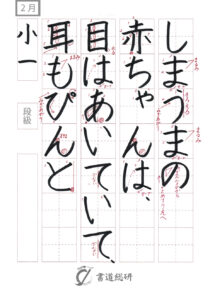 2月
しまうまの
赤ちゃんは、
目はあいていて、
耳もぴんと
小一
段級
書道総研